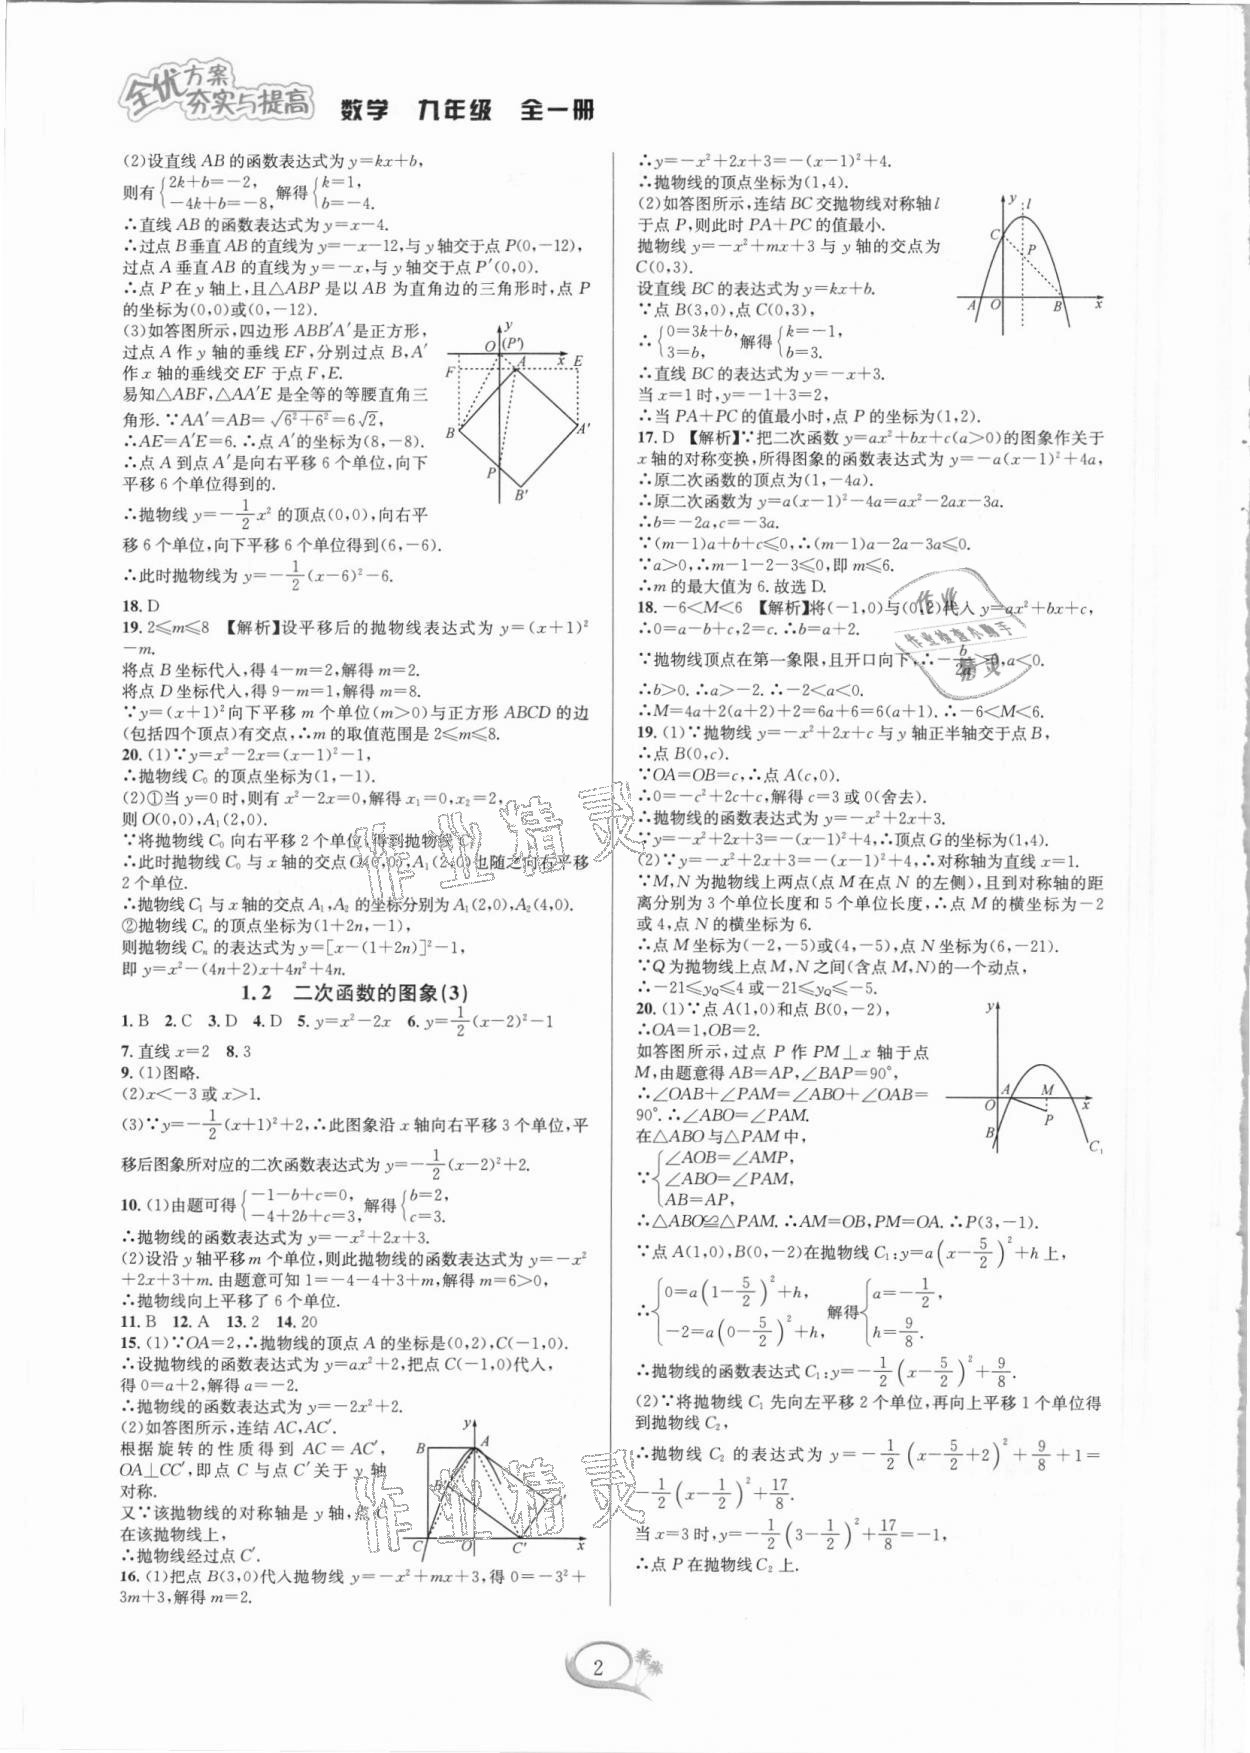 全优方案
夯实与提高
数学 九年级 全一册
(2)设直线 AB 的函数表达式为 y=kx+b,
则有{2k+b=-2, -4k+b=-8, 解得{k=1, b=-4.
∴直线 AB 的函数表达式为 y=x-4.
∴过点 B 垂直 AB 的直线为 y=-x-12,与 y 轴交于点 P(0,-12),
过点 A 垂直 AB 的直线为 y=-x,与 y 轴交于点 P′(0,0).
∴点 P 在 y 轴上,且△ABP 是以 AB 为直角边的三角形时,点 P
的坐标为(0,0)或(0,-12).
(3)如答图所示,四边形 ABB′A′是正方形,
过点 A 作 y 轴的垂线 EF,分别过点 B,A′
作 x 轴的垂线交 EF 于点 F,E.
易知△ABF,△AA′E 是全等的等腰直角三
角形. ∵AA′=AB=√(6²+6²)=6√2,
∴AE=A′E=6. ∴点 A′的坐标为(8,-8).
∴点 A 到点 A′是向右平移 6 个单位,向下
平移 6 个单位得到的.
∴抛物线 y=-1/2x² 的顶点(0,0),向右平
移 6 个单位,向下平移 6 个单位得到(6,-6).
∴此时抛物线为 y=-1/2(x-6)²-6.
y
O (P′)
A x E
F
B A′
P
B′
18. D
19. 2≤m≤8 【解析】设平移后的抛物线表达式为 y=(x+1)²
-m.
将点 B 坐标代入,得 4-m=2,解得 m=2.
将点 D 坐标代入,得 9-1=m,解得 m=8.
∵y=(x+1)²向下平移 m 个单位(m>0)与正方形 ABCD 的边
(包括四个顶点)有交点,∴m 的取值范围是 2≤m≤8.
20. (1)∵y=x²-2x=(x-1)²-1,
∴抛物线 C₀ 的顶点坐标为(1,-1).
(2)①当 y=0 时,则有 x²-2x=0,解得 x₁=0,x₂=2,
则 O(0,0),A₁(2,0).
∵将抛物线 C₀ 向右平移 2 个单位,得到抛物线 C₁,
∴此时抛物线 C₀ 与 x 轴的交点 O(0,0),A₁(2,0)也随之向右平移
2 个单位.
∴抛物线 C₁ 与 x 轴的交点 A₁,A₂ 的坐标分别为 A₁(2,0),A₂(4,0).
②抛物线 Cₙ 的顶点坐标为(1+2n,-1),
则抛物线 Cₙ 的表达式为 y=[x-(1+2n)]²-1,
即 y=x²-(4n+2)x+4n²+4n.
1.2 二次函数的图象(3)
1. B 2. C 3. D 4. D 5. y=x²-2x 6. y=1/2(x-2)²-1
7. 直线 x=2 8. 3
9. (1)图略.
(2)x<-3 或 x>1.
(3)∵y=-1/2(x+1)²+2,∴此图象沿 x 轴向右平移 3 个单位,平
移后图象所对应的二次函数表达式为 y=-1/2(x-2)²+2.
10. (1)由题可得{-1-b+c=0, -4+2b+c=3, 解得{b=2, c=3.
∴抛物线的函数表达式为 y=-x²+2x+3.
(2)设沿 y 轴平移 m 个单位,则此抛物线的函数表达式为 y=-x²
+2x+3+m. 由题意可知 1=-4-4+3+m,解得 m=6>0,
∴抛物线向上平移了 6 个单位.
11. B 12. A 13. 2 14. 20
15. (1)∵OA=2,∴抛物线的顶点 A 的坐标是(0,2),C(-1,0).
∴设抛物线的函数表达式为 y=ax²+2,把点 C(-1,0)代入,
得 0=a+2,解得 a=-2.
∴抛物线的函数表达式为 y=-2x²+2.
(2)如答图所示,连结 AC,AC′.
根据旋转的性质得到 AC=AC′,
OA⊥CC′,即点 C 与点 C′关于 y 轴
对称.
又∵该抛物线的对称轴是 y 轴,点 C
在该抛物线上,
∴抛物线经过点 C′.
y
B A
B′
O′
C O C′ x
16. (1)把点 B(3,0)代入抛物线 y=-x²+mx+3,得 0=-3²+
3m+3,解得 m=2.
∴y=-x²+2x+3=-(x-1)²+4.
∴抛物线的顶点坐标为(1,4).
(2)如答图所示,连结 BC 交抛物线对称轴 l
于点 P,则此时 PA+PC 的值最小.
抛物线 y=-x²+mx+3 与 y 轴的交点为
C(0,3).
设直线 BC 的表达式为 y=kx+b.
∵点 B(3,0),点 C(0,3),
∴{0=3k+b, 3=b, 解得{k=-1, b=3.
∴直线 BC 的表达式为 y=-x+3.
当 x=1 时,y=-1+3=2,
∴当 PA+PC 的值最小时,点 P 的坐标为(1,2).
y l
C
P
A O B x
17. D 【解析】∵把二次函数 y=ax²+bx+c(a>0)的图象作关于
x 轴的对称变换,所得图象的函数表达式为 y=-a(x-1)²+4a,
∴原二次函数的顶点为(1,-4a).
∴原二次函数为 y=a(x-1)²-4a=ax²-2ax-3a.
∴b=-2a,c=-3a.
∵(m-1)a+b+c≤0,∴(m-1)a-2a-3a≤0.
∵a>0,∴m-1-2-3≤0,即 m≤6.
∴m 的最大值为 6. 故选 D.
18. -6<M<6 【解析】将(-1,0)与(0,2)代入 y=ax²+bx+c,
∴0=a-b+c,2=c. ∴b=a+2.
∵抛物线顶点在第一象限,且开口向下,∴-b/2a>0,a<0.
∴b>0. ∴a>-2. ∴-2<a<0.
∴M=4a+2(a+2)+2=6a+6=6(a+1). ∴-6<M<6.
19. (1)∵抛物线 y=-x²+2x+c 与 y 轴正半轴交于点 B,
∴点 B(0,c).
∵OA=OB=c,∴点 A(c,0).
∴0=-c²+2c+c,解得 c=3 或 0(舍去).
∴抛物线的函数表达式为 y=-x²+2x+3.
∵y=-x²+2x+3=-(x-1)²+4,∴顶点 G 的坐标为(1,4).
(2)∵y=-x²+2x+3=-(x-1)²+4,∴对称轴为直线 x=1.
∵M,N 为抛物线上两点(点 M 在点 N 的左侧),且到对称轴的距
离分别为 3 个单位长度和 5 个单位长度,∴点 M 的横坐标为-2
或 4,点 N 的横坐标为 6.
∴点 M 坐标为(-2,-5)或(4,-5),点 N 坐标为(6,-21).
∵Q 为抛物线上点 M,N 之间(含点 M,N)的一个动点,
∴-21≤y_Q≤4 或-21≤y_Q≤-5.
20. (1)∵点 A(1,0)和点 B(0,-2),
∴OA=1,OB=2.
如答图所示,过点 P 作 PM⊥x 轴于点
M,由题意得 AB=AP,∠BAP=90°,
∴∠OAB+∠PAM=∠ABO+∠OAB=
90°. ∴∠ABO=∠PAM.
在△ABO 与△PAM 中,
∵{∠AOB=∠AMP, ∠ABO=∠PAM, AB=AP,
y
A M
O x
P
B
C₁
∴△ABO≌△PAM. ∴AM=OB,PM=OA. ∴P(3,-1).
∵点 A(1,0),B(0,-2)在抛物线 C₁:y=a(x-5/2)²+h 上,
∴{0=a(1-5/2)²+h, -2=a(0-5/2)²+h, 解得{a=-1/2, h=9/8.
∴抛物线的函数表达式 C₁:y=-1/2(x-5/2)²+9/8.
(2)∵将抛物线 C₁ 先向左平移 2 个单位,再向上平移 1 个单位得
到抛物线 C₂,
∴抛物线 C₂ 的表达式为 y=-1/2(x-5/2+2)²+9/8+1=
-1/2(x-1/2)²+17/8.
当 x=3 时,y=-1/2(3-1/2)²+17/8=-1,
∴点 P 在抛物线 C₂ 上.
作业
作业检查小助手
精灵
作业精灵
作业精灵
2